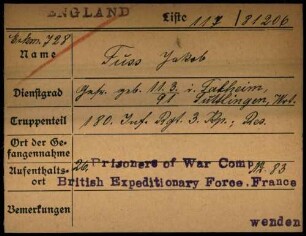 ENGLAND Liste 117/81206
Erkm. 728
Name Fuss Jakob
Dienstgrad Gefr. geb. 11.3.98 i. Talheim,
Tuttlingen, Wrt.
Truppenteil 180. Inf. Rgt. 3. Kp.; Res.
Ort der Ge-
fangennahme
Aufenthalts-
ort
26. Prisoners of War Comp 12. 83
British Expeditionary Force. France
Bemerkungen
wenden